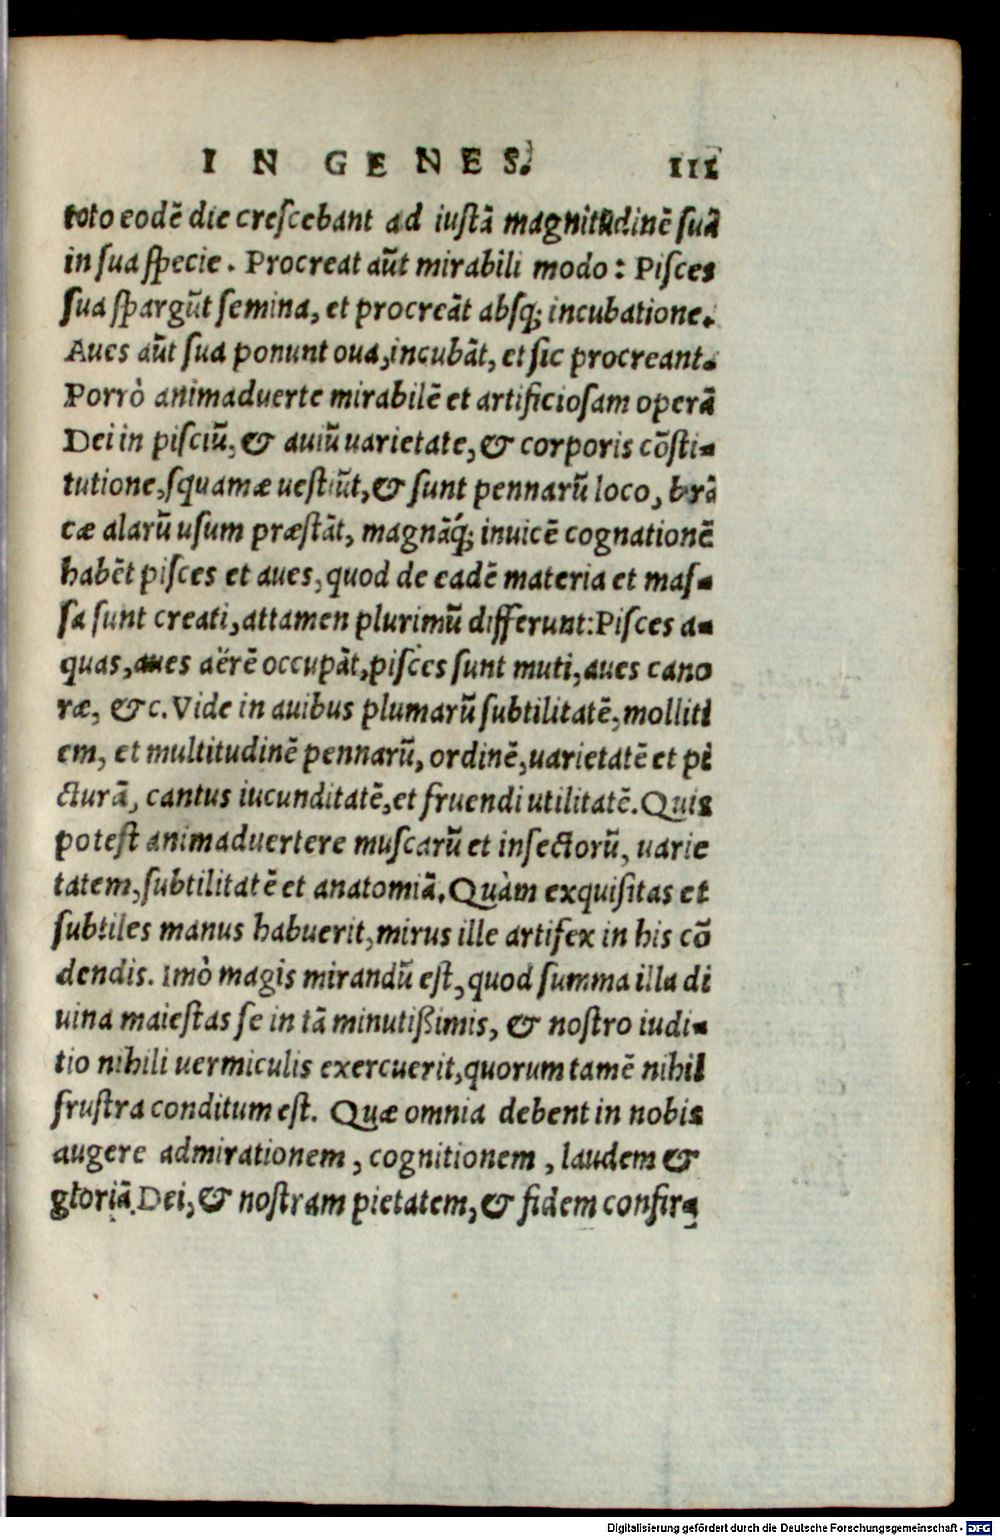 IN GENES. 111
toto eodē die creſcebant ad iuſtā magnitudinē ſuā
in ſua ſpecie. Procreat aūt mirabili modo: Piſces
ſua ſpargūt ſemina, et procreāt abſq; incubatione.
Aues aūt ſua ponunt oua, incubāt, et ſic procreant.
Porrò animaduerte mirabilē et artificioſam operā
Dei in piſciū, & auiū uarietate, & corporis cōſti-
tutione, ſquamæ ueſtiūt, & ſunt pennarū loco, brā
cæ alarū uſum præſtāt, magnāq́; inuicē cognationē
habēt piſces et aues, quod de eadē materia et maſ-
ſa ſunt creati, attamen plurimū differunt: Piſces a-
quas, aues aërē occupāt, piſces ſunt muti, aues cano
ræ, &c. Vide in auibus plumarū ſubtilitatē, molliti
em, et multitudinē pennarū, ordinē, uarietatē et pi
cturā, cantus iucunditatē, et fruendi utilitatē. Quis
poteſt animaduertere muſcarū et inſectorū, uarie
tatem, ſubtilitatē et anatomiā. Quàm exquiſitas et
ſubtiles manus habuerit, mirus ille artifex in his cō
dendis. Imò magis mirandū eſt, quod ſumma illa di
uina maieſtas ſe in tā minutißimis, & noſtro iudi-
tio nihili uermiculis exercuerit, quorum tamē nihil
fruſtra conditum eſt. Quæ omnia debent in nobis
augere admirationem, cognitionem, laudem &
gloriā Dei, & noſtram pietatem, & fidem confir-
Digitalisierung gefördert durch die Deutsche Forschungsgemeinschaft - DFG